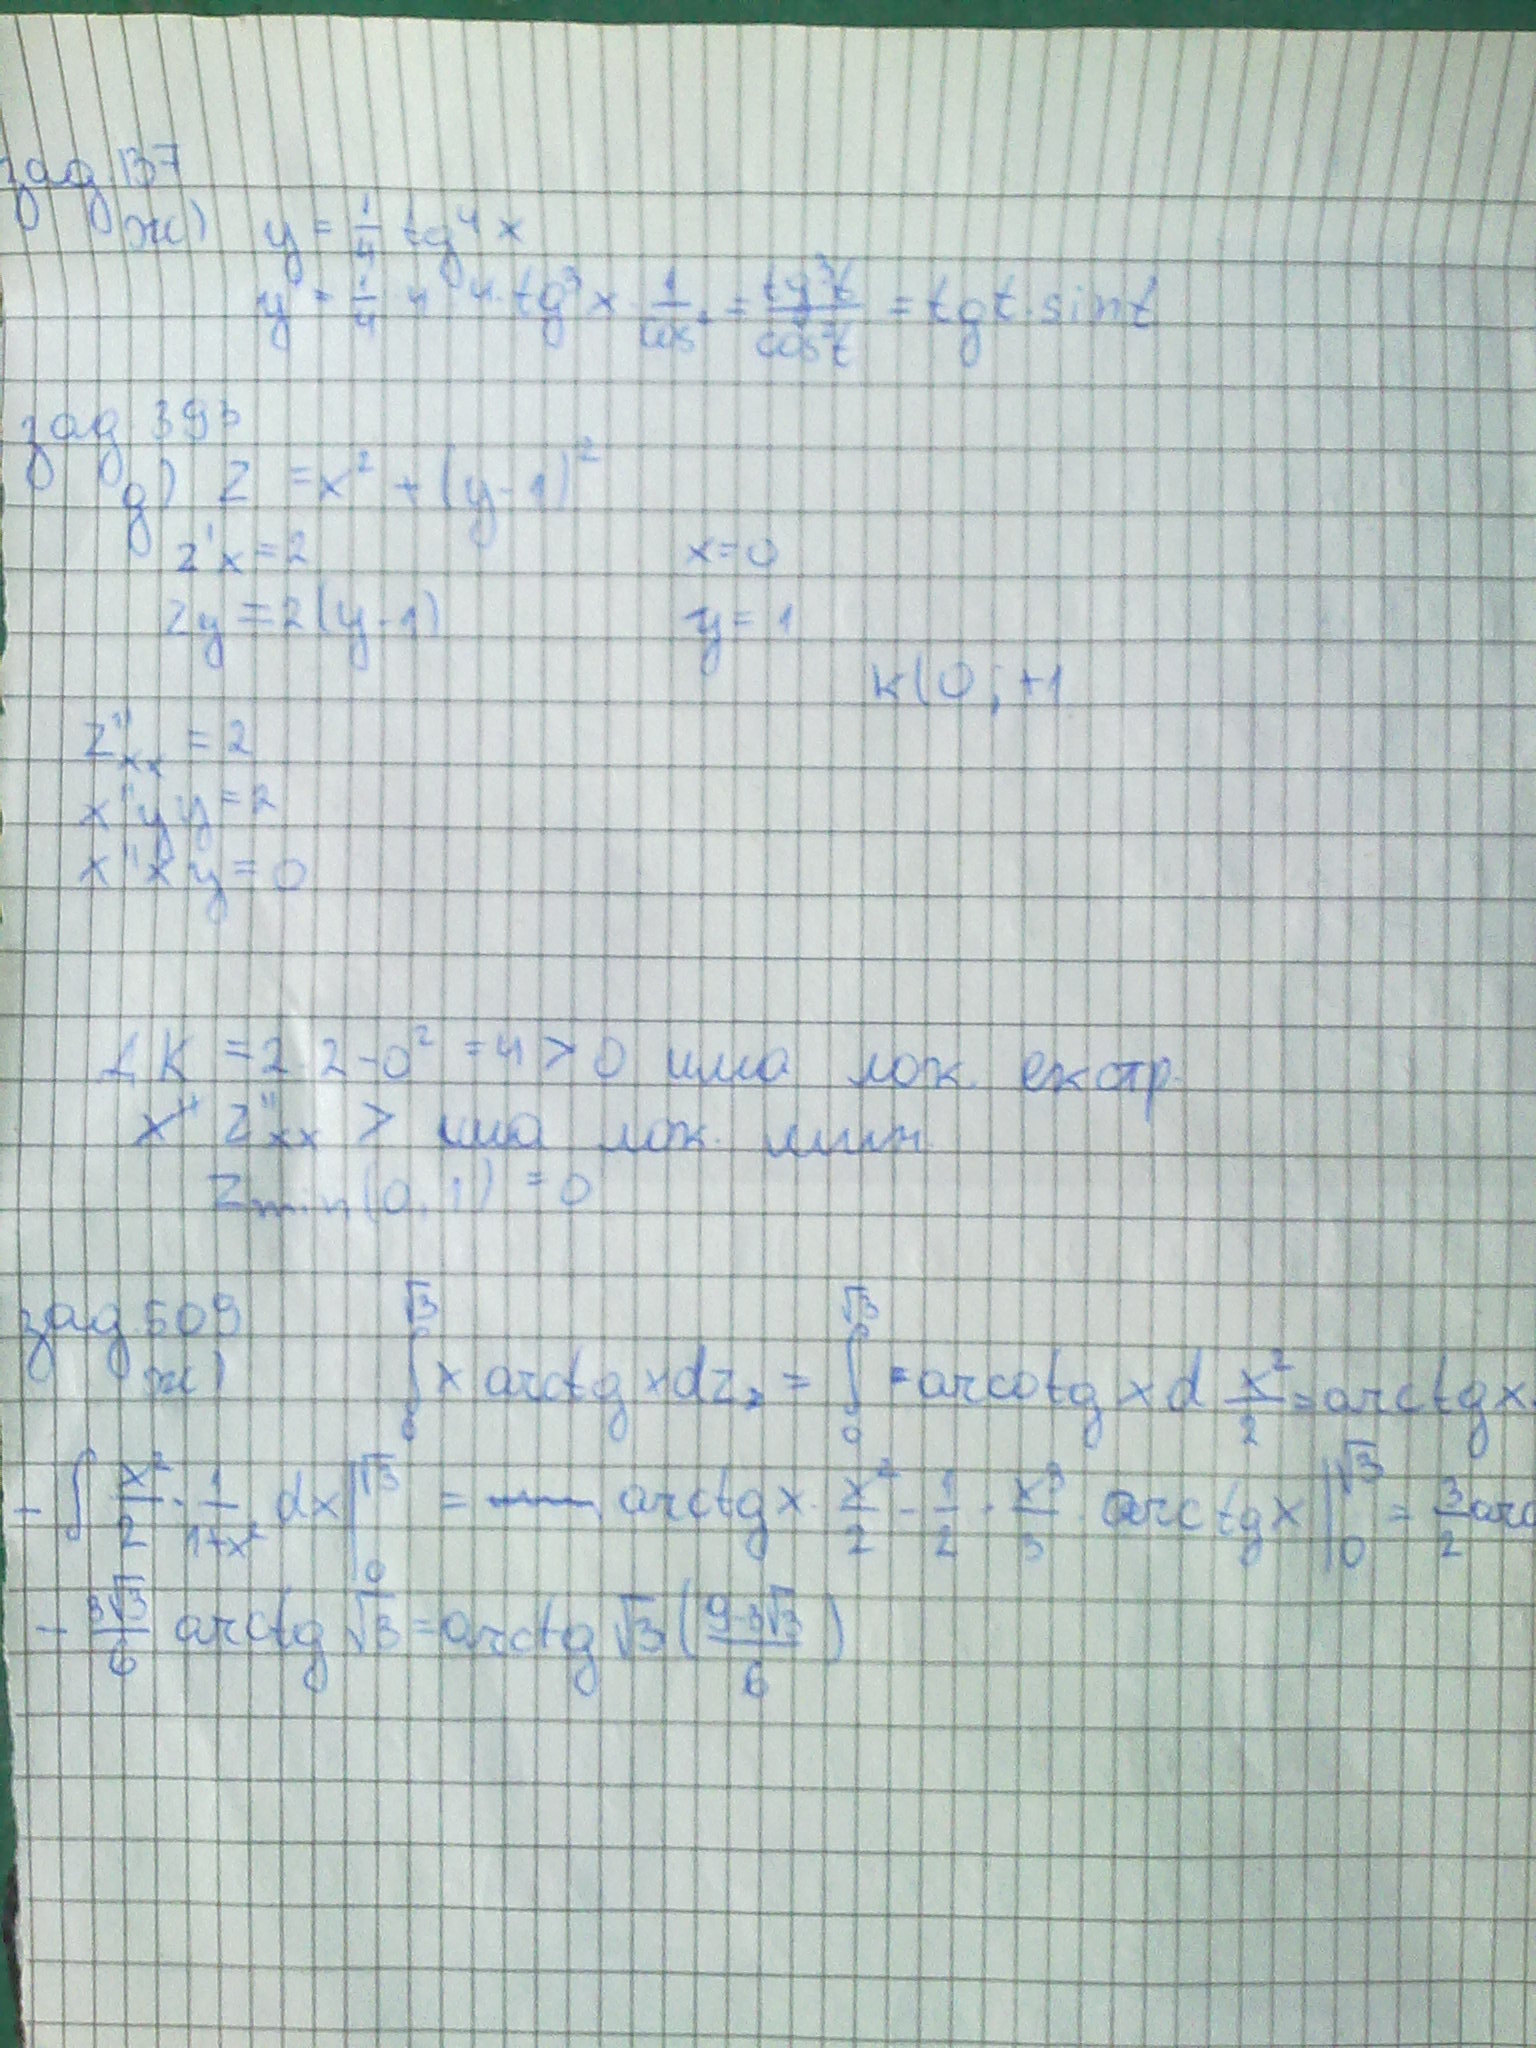 зад. 137
ж) y = 1/4 tg⁴ x
y' = 1/4 · 4 · 4 · tg³ x · 1/cos = tg³t/cos²t = tgt · sint
зад. 393
д) z = x² + (y-1)²
z'x = 2 x = 0
zy = 2(y-1) y = 1
к(0; +1
z''xx = 2
x''yy = 2
x''xy = 0
ΔK = 2 2 - 0² = 4 > 0 има лок. екстр.
x'' z''xx > има лок. мин.
zmin(0,1) = 0
зад 509
ж) ∫₀^√3 x arctg x dz, = ∫₀^√3 = arcotg x d x²/2 = arctg x.
- ∫ x²/2 · 1/1+x² dx |₀^√3 = arctg x · x²/2 - 1/2 · x³/3 · arctg x |₀^√3 = 3/2 arc
- 3√3/6 arctg √3 = arctg √3 (9-3√3/6)